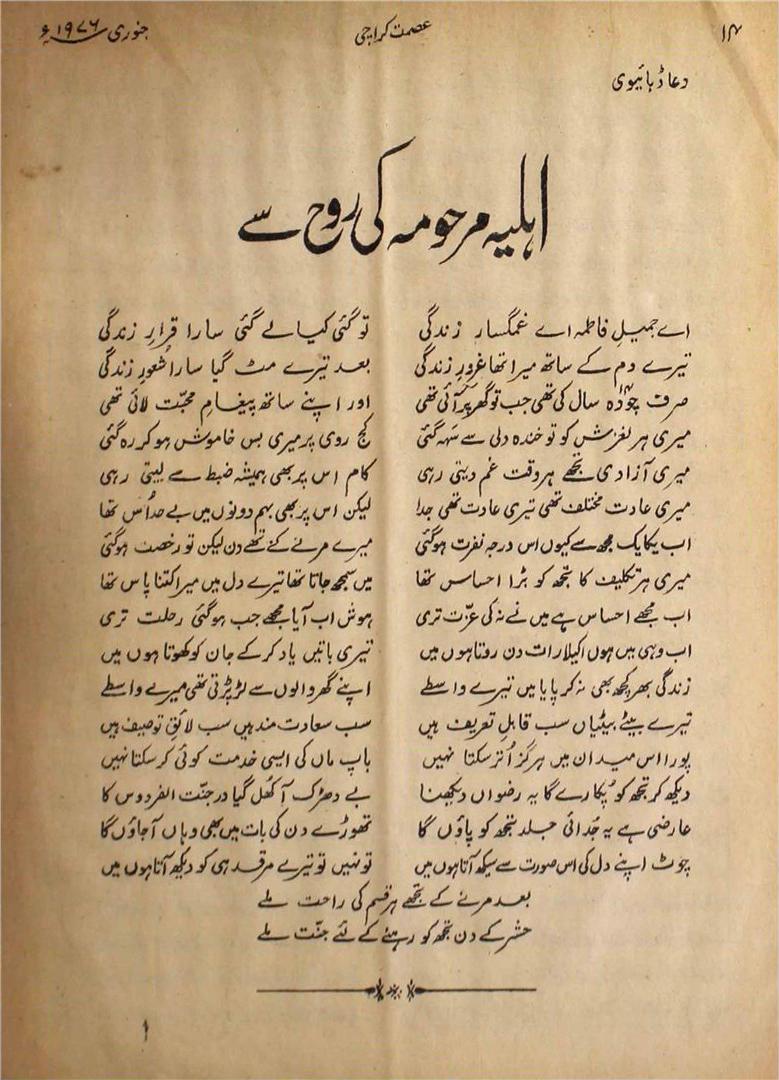 ۱۴ عصمت کراچی جنوری ۱۹۷۶ء
دعا ڈبائیوی
اہلیہ مرحومہ کی روح سے
اے جمیلِ فاطمہ اے غمگسارِ زندگی تو گئی کیا لے گئی سارا قرارِ زندگی
تیرے دم کے ساتھ میرا تھا غرورِ زندگی بعد تیرے مٹ گیا سارا شعورِ زندگی
صرف چودہ ۱۴ سال کی تھی جب تو گھر پر آئی تھی اور اپنے ساتھ پیغامِ محبّت لائی تھی
میری ہر لغزش کو تو خندہ دلی سے سہہ گئی کج روی پر میری بس خاموش ہو کر رہ گئی
میری آزادی تجھے ہر وقت غم دیتی رہی کام اس پر بھی ہمیشہ ضبط سے لیتی رہی
میری عادت مختلف تھی تیری عادت تھی جدا لیکن اس پر بھی ہم دونوں میں بے حد اُنس تھا
اب یکایک مجھ سے کیوں اس درجہ نفرت ہوگئی میرے مرنے کے تھے دن لیکن تو رخصت ہوگئی
میری ہر تکلیف کا تجھ کو بڑا احساس تھا میں سمجھ جاتا تھا تیرے دل میں میرا کتنا پاس تھا
اب مجھے احساس ہے میں نے نہ کی عزّت تری ہوش اب آیا مجھے جب ہوگئی رحلت تری
اب وہی میں ہوں اکیلا رات دن روتا ہوں میں تیری باتیں یاد کر کے جان کو کھوتا ہوں میں
زندگی بھر کچھ بھی نہ کر پایا میں تیرے واسطے اپنے گھر والوں سے لڑ پڑتی تھی میرے واسطے
تیرے بیٹے بیٹیاں سب قابلِ تعریف ہیں سب سعادت مند ہیں سب لائقِ توصیف ہیں
پورا اس میدان میں ہرگز اُتر سکتا نہیں باپ ماں کی ایسی خدمت کوئی کر سکتا نہیں
دیکھ کر تجھ کو پکارے گا یہ رضواں دیکھنا بے دھڑک آ کُھل گیا در جنّت الفردوس کا
عارضی ہے یہ جُدائی جلد تجھ کو پاؤں گا تھوڑے دن کی بات میں بھی وہاں آجاؤں گا
چوٹ اپنے دل کی اس صورت سے سیکھ آتا ہوں میں تو نہیں تو تیرے مرقد ہی کو دیکھ آتا ہوں میں
بعد مرنے کے تجھے ہر قسم کی راحت ملے
حشر کے دن تجھ کو رہنے کے لئے جنّت ملے